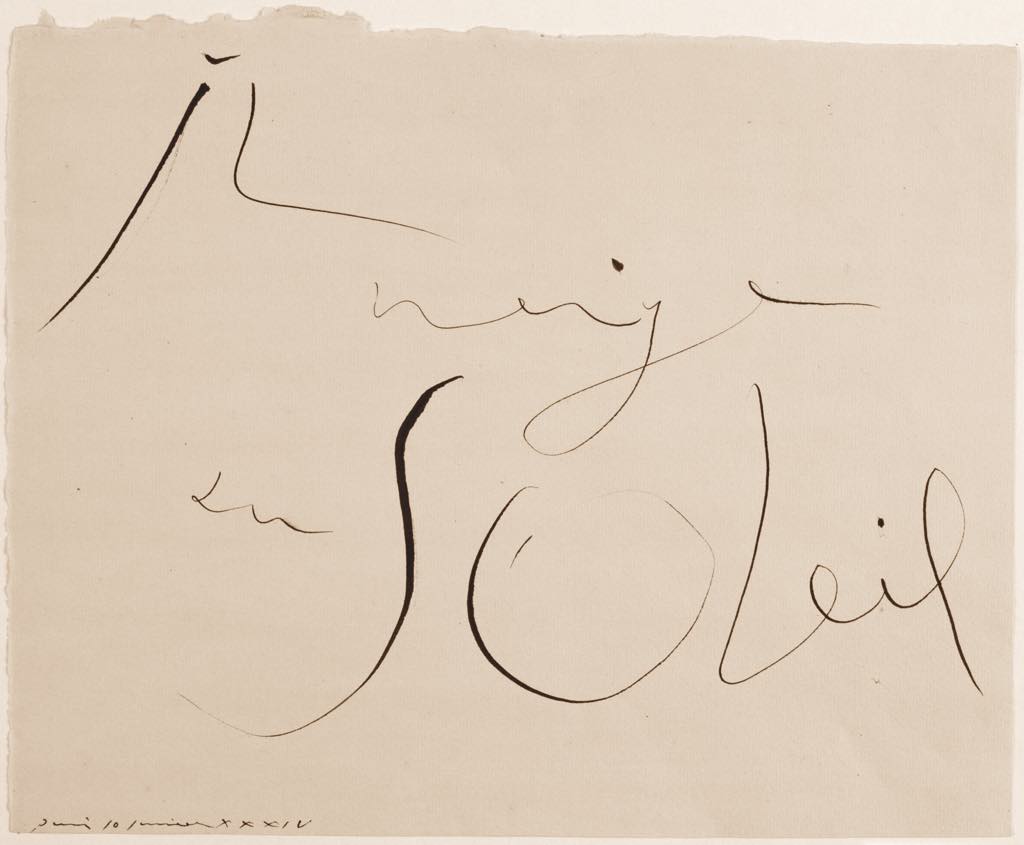 il
neige
au soleil
paris 10 janvier XXXIV